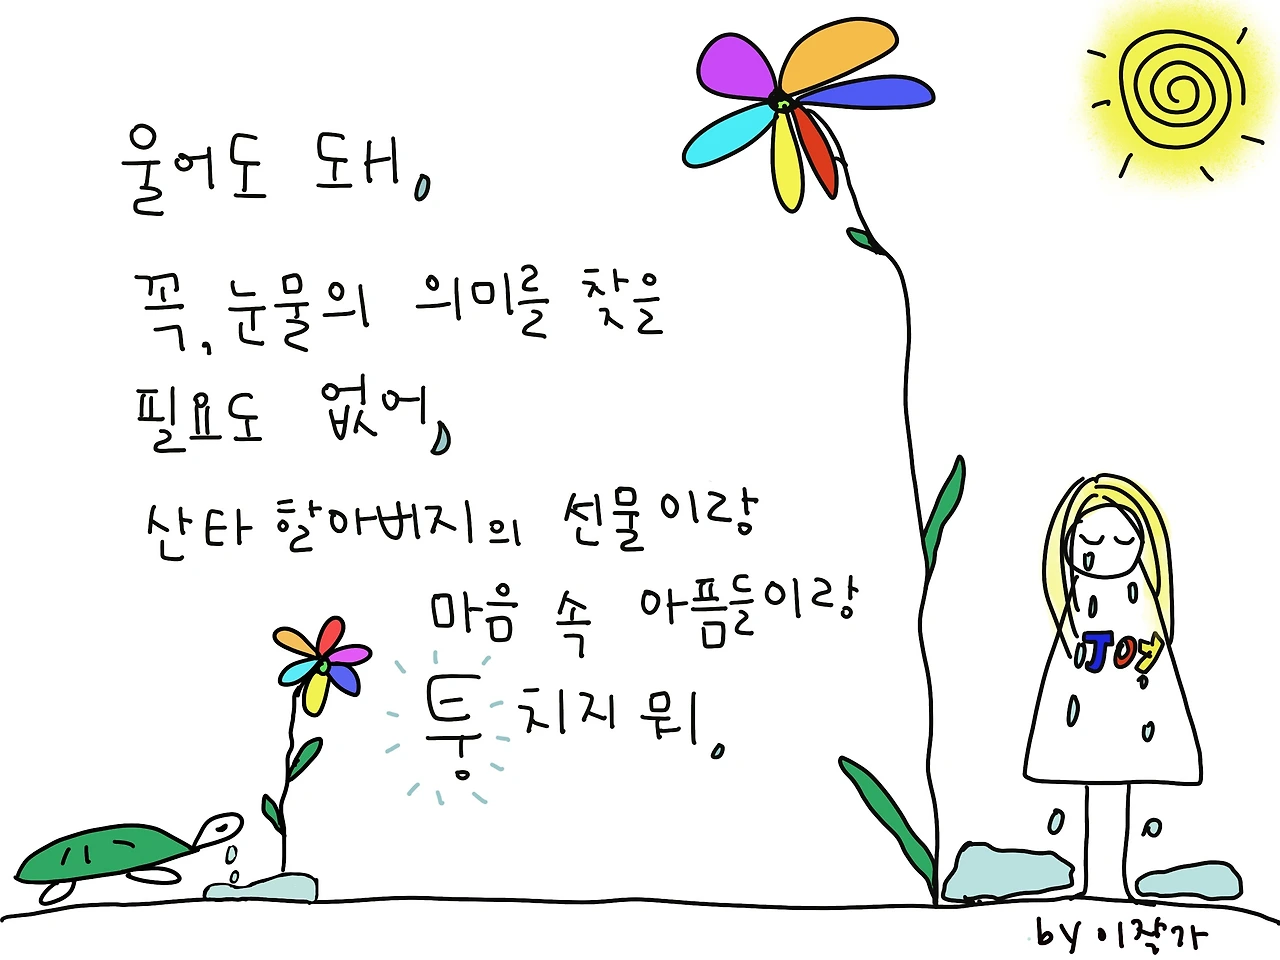 울어도 돼.
꼭, 눈물의 의미를 찾을
필요도 없어,
산타 할아버지의 선물이랑
마음 속 아픔들이랑
퉁 치지 뭐.
JOY
by 이작가